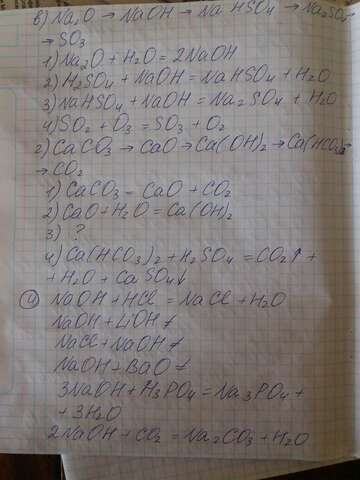 в) Na₂O → NaOH → NaHSO₄ → Na₂SO₄
→ SO₃
1) Na₂O + H₂O = 2NaOH
2) H₂SO₄ + NaOH = NaHSO₄ + H₂O
3) NaHSO₄ + NaOH = Na₂SO₄ + H₂O
4) SO₂ + O₃ = SO₃ + O₂
г) CaCO₃ → CaO → Ca(OH)₂ → Ca(HCO₃)₂
→ CO₂
1) CaCO₃ = CaO + CO₂
2) CaO + H₂O = Ca(OH)₂
3) ?
4) Ca(HCO₃)₂ + H₂SO₄ = CO₂↑ +
+ H₂O + CaSO₄↓
4) NaOH + HCl = NaCl + H₂O
NaOH + LiOH ≠
NaCl + NaOH ≠
NaOH + BaO ≠
3NaOH + H₃PO₄ = Na₃PO₄ +
+ 3H₂O
2NaOH + CO₂ = Na₂CO₃ + H₂O